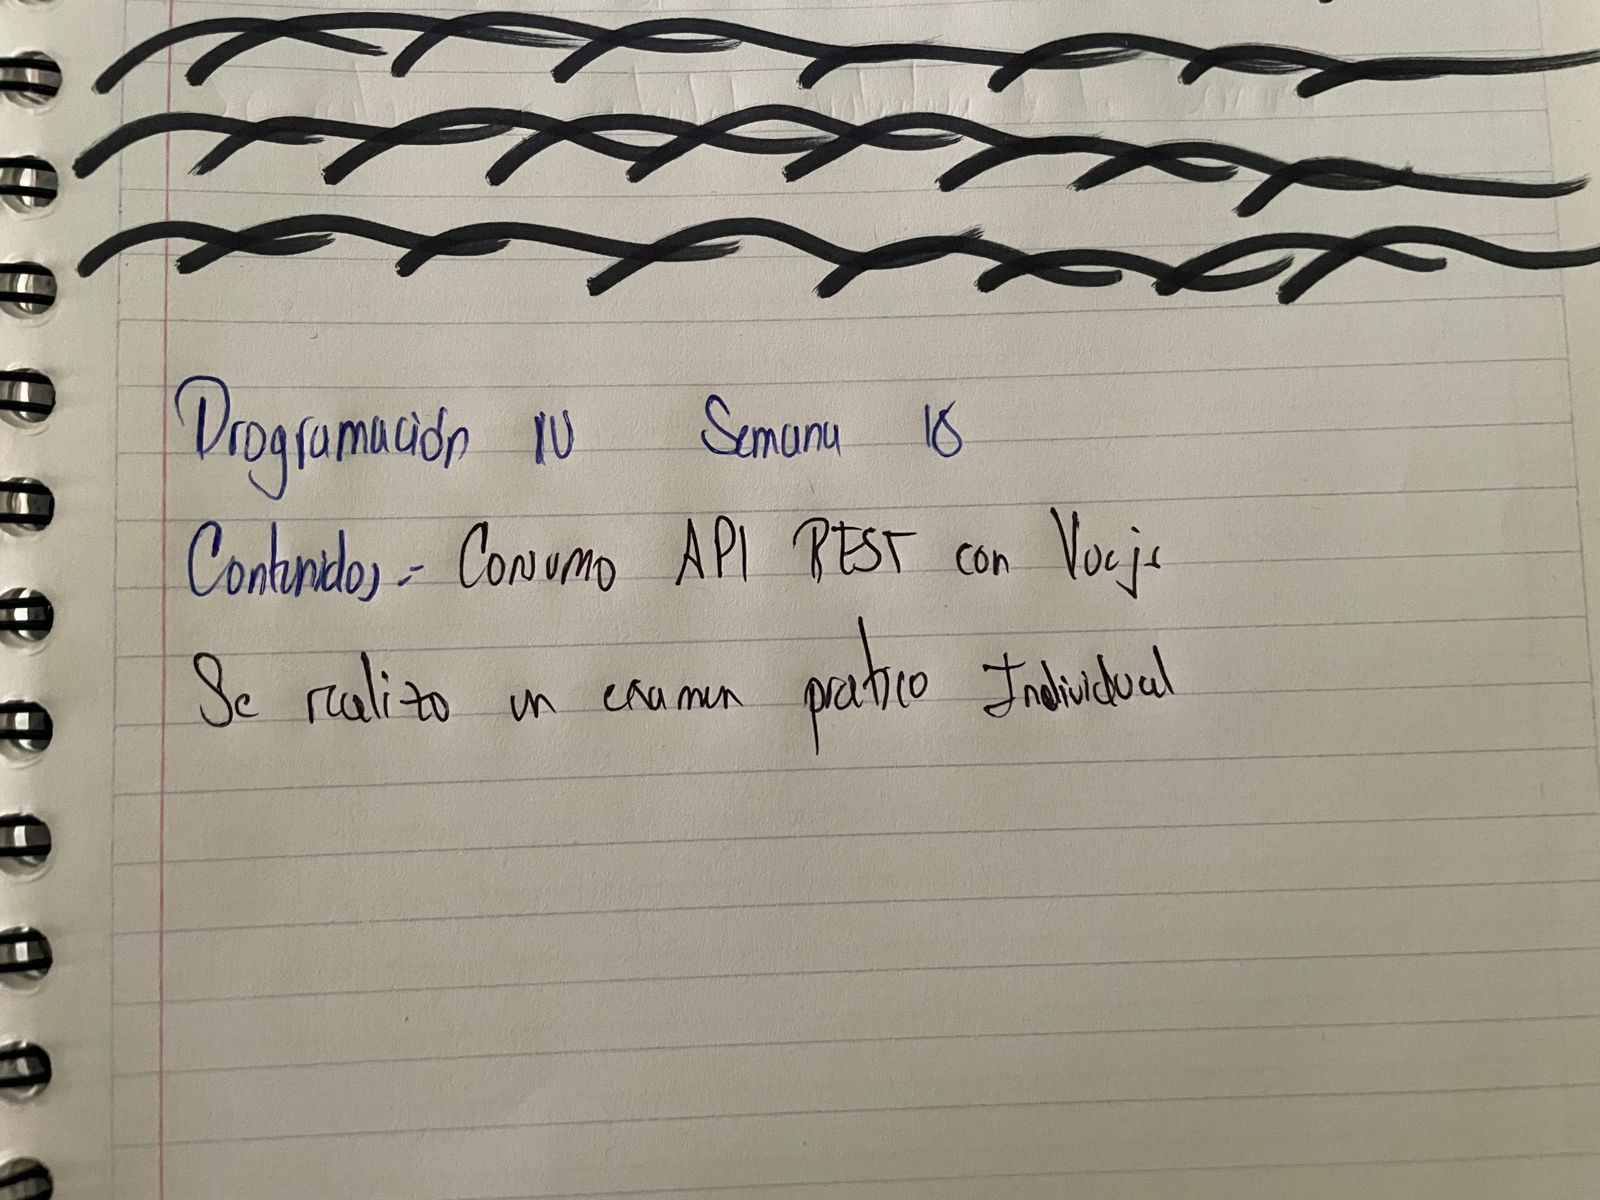 Programación IV Semana 15
Contenidos.- Consumo API REST con Vuejs
Se realizo un examen pratico Individual